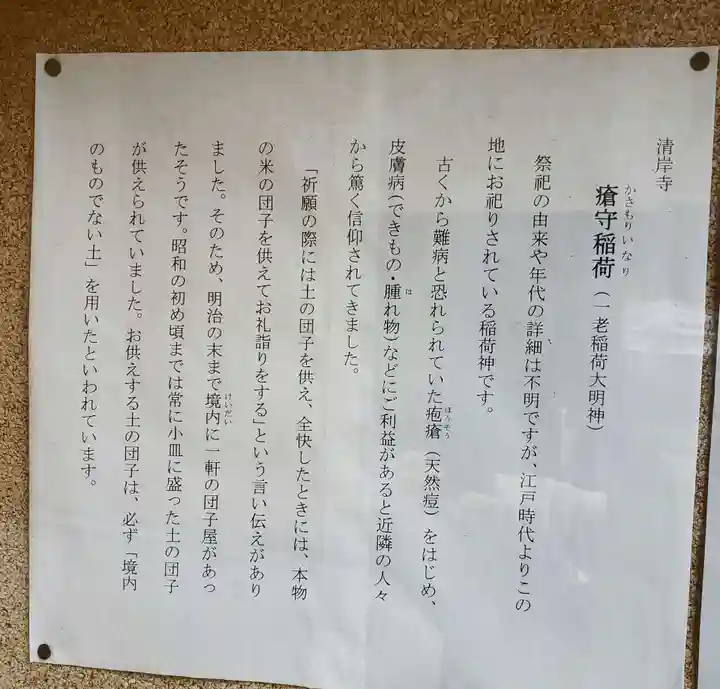 清岸寺
瘡守稲荷（一老稲荷大明神）
かさもりいなり
祭祀の由来や年代の詳細は不明ですが、江戸時代よりこの
地にお祀りされている稲荷神です。
古くから難病と恐れられていた疱瘡（天然痘）をはじめ、
ほうそう
皮膚病（できもの・腫れ物）などにご利益があると近隣の人々
は
から篤く信仰されてきました。
「祈願の際には土の団子を供え、全快したときには、本物
の米の団子を供えてお礼詣りをする」という言い伝えがあり
ました。そのため、明治の末まで境内に一軒の団子屋があっ
けいだい
たそうです。昭和の初め頃までは常に小皿に盛った土の団子
が供えられていました。お供えする土の団子は、必ず「境内
のものでない土」を用いたといわれています。